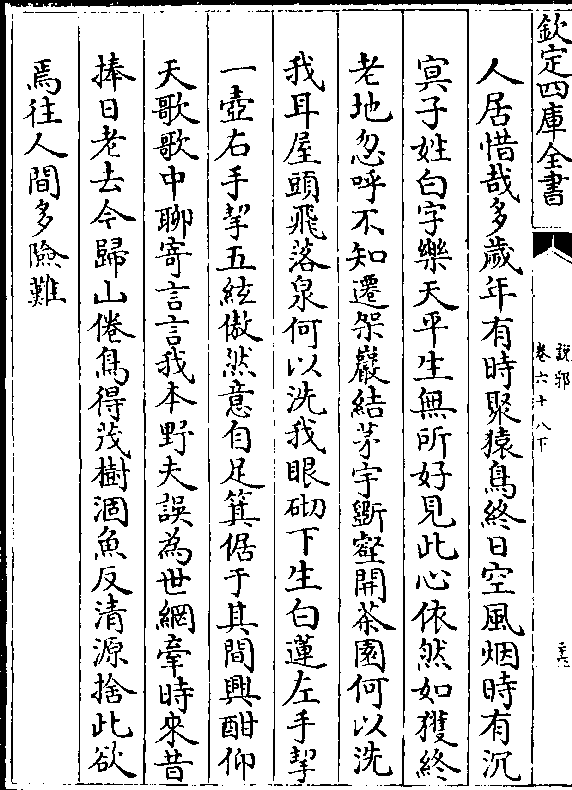 欽定四庫全書
說郛
卷六十八下
人居惜哉多歲年有時聚猿鳥終日空風烟時有沉
㝠子姓白字樂天平生無所好見此心依然如獲終
老地忽呼不知遷架巖結茅宇斵壑開茶園何以洗
我耳屋頭飛落泉何以洗我眼砌下生白蓮左手挈
一壺右手挈五絃傲然意自足箕倨于其間興酣仰
天歌歌中聊寄言言我本野夫誤為世網牽時來昔
捧日老去今歸山倦鳥得茂樹涸魚反清源捨此欲
焉往人間多險難